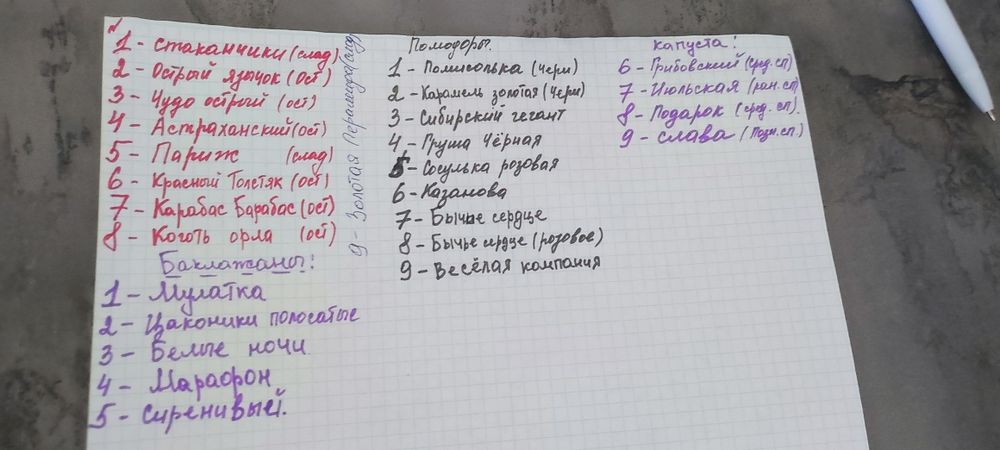 1 - Стаканчики (слад)
2 - Острый язычок (ост)
3 - Чудо острый (ост)
4 - Астраханский (ост)
5 - Париж (слад)
6 - Красный Толстяк (ост)
7 - Карабас Барабас (ост)
8 - Коготь орла (ост)
9 - Золотая Пирамида (слад)
Баклажаны!
1 - Мулатка
2 - Цаконики полосатые
3 - Белые ночи
4 - Марафон
5 - Сиренивый.
Помодоры.
1 - Полисолька (Чери)
2 - Карамель золотая (Чери)
3 - Сибирский гегант
4 - Груша Чёрная
5 - Сосулька розовая
6 - Казанова
7 - Бычье сердце
8 - Бычье сердце (розовое)
9 - Весёлая компания
Капуста!
6 - Грибовский (сред. сп)
7 - Июльская (ран. сп)
8 - Подарок (сред. сп).
9 - Слава (Позн. сп.)